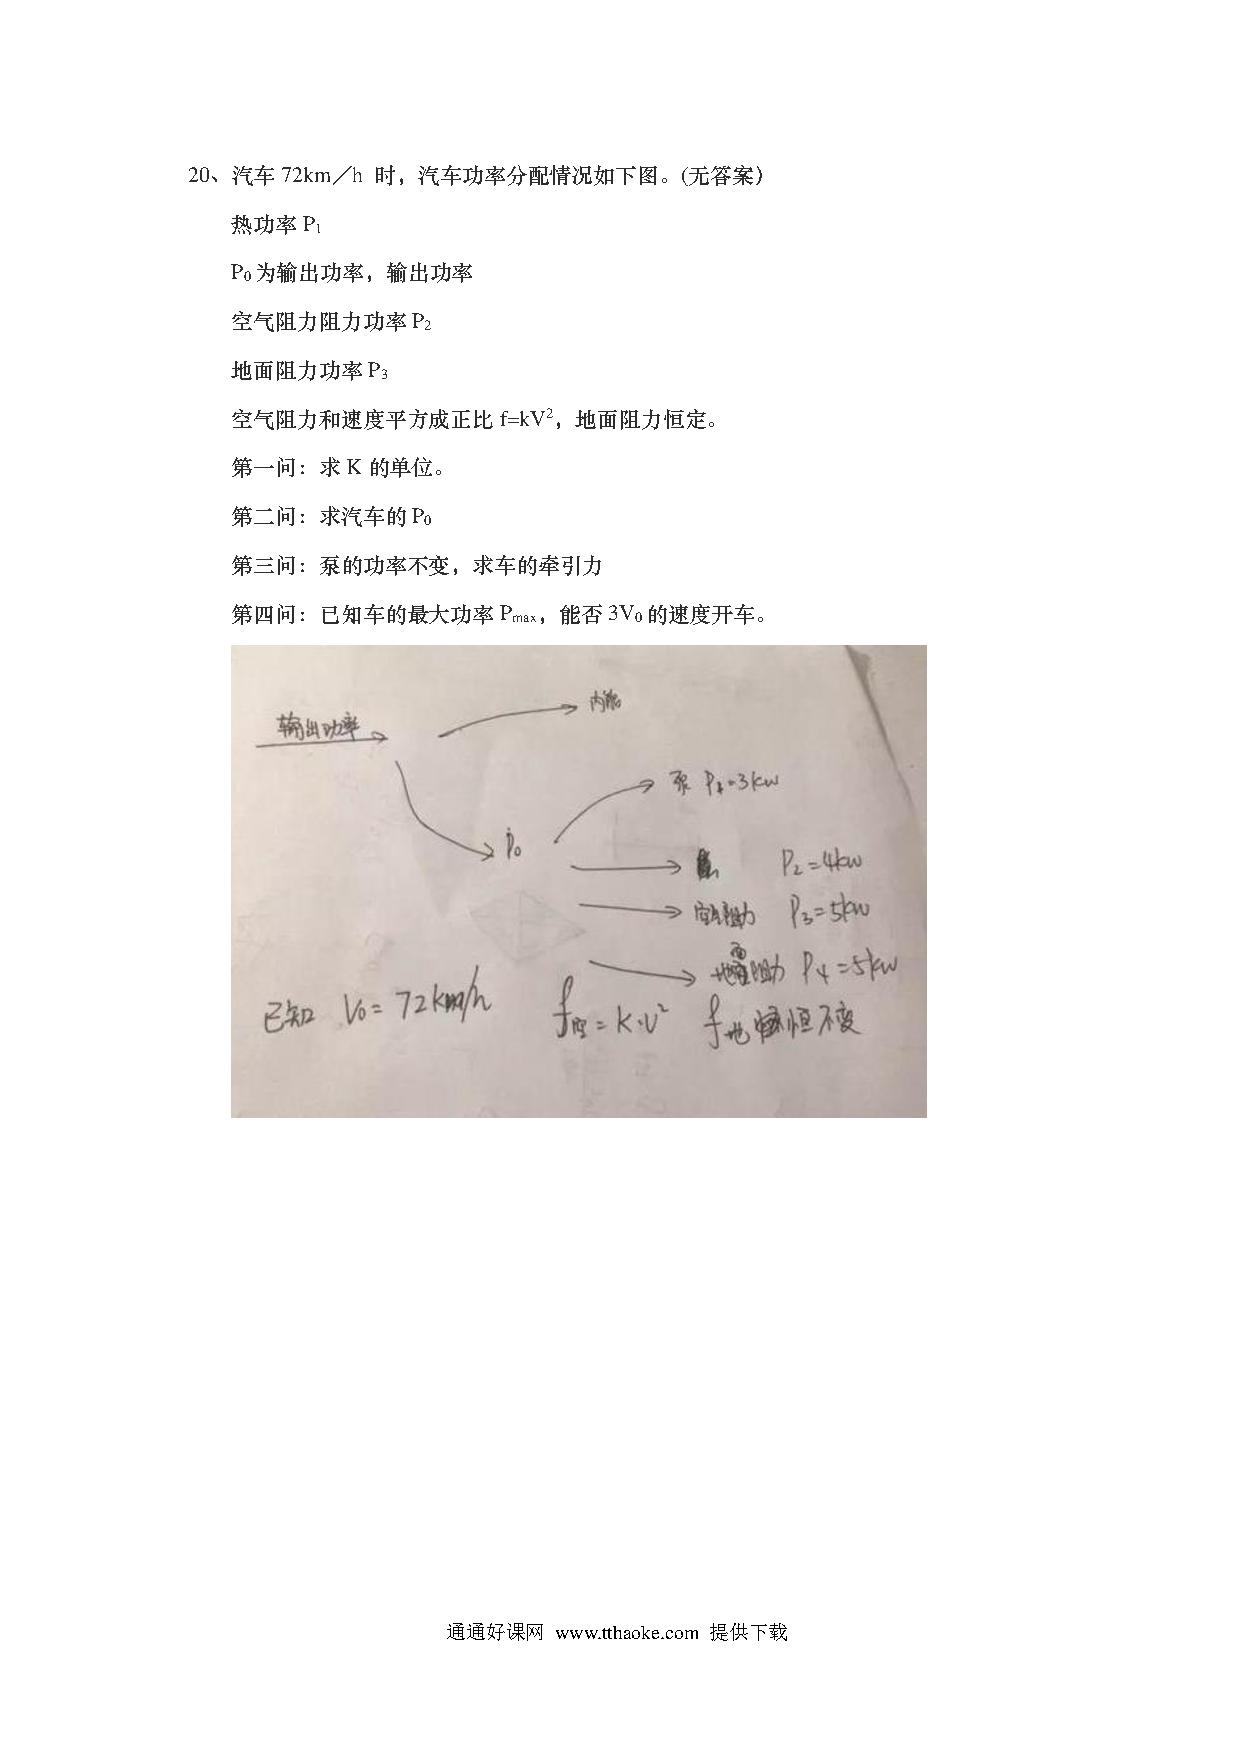 20、汽车 72km／h 时，汽车功率分配情况如下图。(无答案)
热功率 P₁
P₀为输出功率，输出功率
空气阻力阻力功率 P₂
地面阻力功率 P₃
空气阻力和速度平方成正比 f=kV²，地面阻力恒定。
第一问：求 K 的单位。
第二问：求汽车的 P₀
第三问：泵的功率不变，求车的牵引力
第四问：已知车的最大功率 Pmax，能否 3V₀ 的速度开车。
内能
输出功率
泵 P₁=3kw
P₀
P₂=4kw
空气阻力 P₃=5kw
地面阻力 P₄=5kw
已知 V₀=72km/h f空=K·V² f地 恒不变
通通好课网 www.tthaoke.com 提供下载